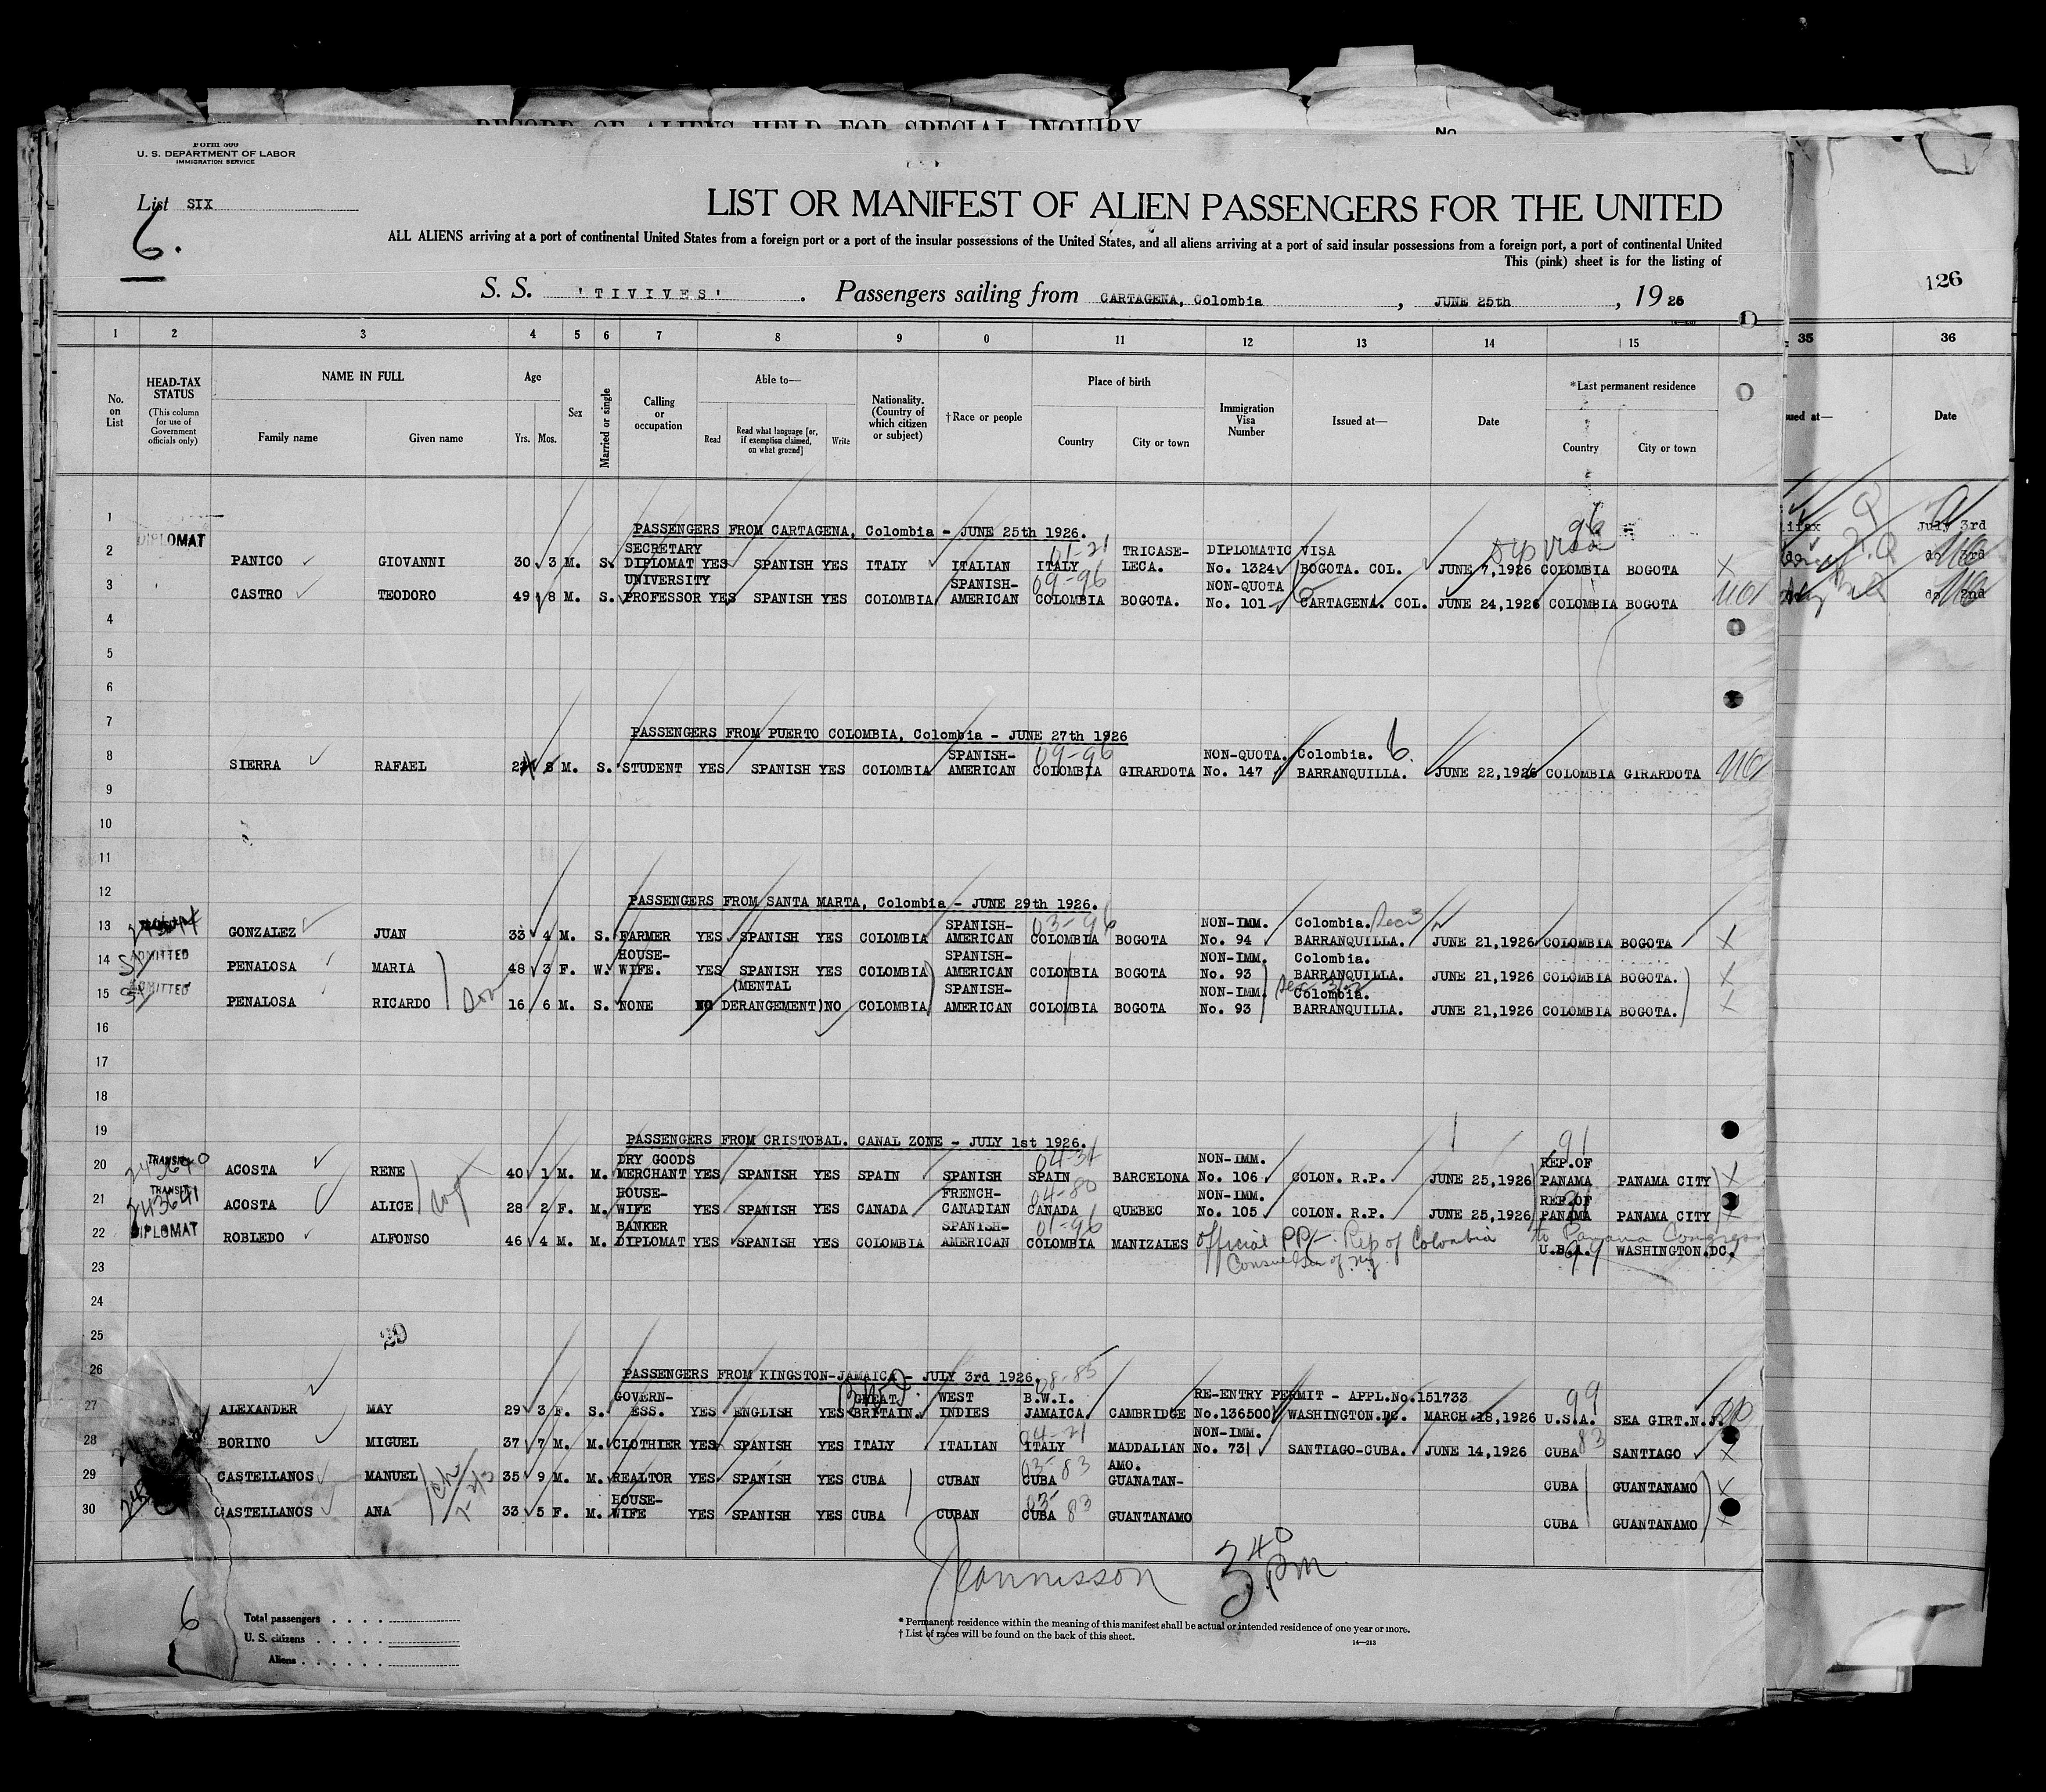 RECORD OF ALIENS HELD FOR SPECIAL INQUIRY
No.
Form 500
U. S. DEPARTMENT OF LABOR
IMMIGRATION SERVICE
List SIX
6.
LIST OR MANIFEST OF ALIEN PASSENGERS FOR THE UNITED
ALL ALIENS arriving at a port of continental United States from a foreign port or a port of the insular possessions of the United States, and all aliens arriving at a port of said insular possessions from a foreign port, a port of continental United
This (pink) sheet is for the listing of
126
S. S. 'TIVIVES'. Passengers sailing from CARTAGENA, Colombia, JUNE 25th, 1926
1 2 3 4 5 6 7 8 9 0 11 12 13 14 15 35 36
No. on List
HEAD-TAX STATUS (This column for use of Government officials only)
NAME IN FULL Family name Given name
Age Yrs. Mos.
Sex
Married or single
Calling or occupation
Able to— Read Read what language [or, if exemption claimed, on what ground] Write
Nationality. (Country of which citizen or subject)
†Race or people
Place of birth Country City or town
Immigration Visa Number
Issued at—
Date
*Last permanent residence Country City or town
sued at— Date
1
PASSENGERS FROM CARTAGENA, Colombia - JUNE 25th 1926. 96 lifax July 3rd
DIPLOMAT
2 PANICO GIOVANNI 30 3 M. S. SECRETARY DIPLOMAT YES SPANISH YES ITALY ITALIAN ITALY 01-21 TRICASE-LECA. DIPLOMATIC VISA No. 1324 BOGOTA. COL. JUNE 7,1926 COLOMBIA BOGOTA X do 3rd
3 CASTRO TEODORO 49 8 M. S. UNIVERSITY PROFESSOR YES SPANISH YES COLOMBIA SPANISH-AMERICAN COLOMBIA 09-96 BOGOTA. NON-QUOTA No. 101 CARTAGENA. COL. JUNE 24,1926 COLOMBIA BOGOTA do 2nd
4
5
6
7
PASSENGERS FROM PUERTO COLOMBIA, Colombia - JUNE 27th 1926
8 SIERRA RAFAEL 8 M. S. STUDENT YES SPANISH YES COLOMBIA SPANISH-AMERICAN COLOMBIA 09-96 GIRARDOTA NON-QUOTA. No. 147 Colombia. BARRANQUILLA. 6 JUNE 22,1926 COLOMBIA GIRARDOTA
9
10
11
12
PASSENGERS FROM SANTA MARTA, Colombia - JUNE 29th 1926.
13 GONZALEZ JUAN 33 4 M. S. FARMER YES SPANISH YES COLOMBIA SPANISH-AMERICAN COLOMBIA 03-96 BOGOTA NON-IMM. No. 94 Colombia. BARRANQUILLA. JUNE 21,1926 COLOMBIA BOGOTA X
14 ADMITTED PENALOSA MARIA 48 3 F. W. HOUSE-WIFE. YES SPANISH YES COLOMBIA SPANISH-AMERICAN COLOMBIA BOGOTA NON-IMM. No. 93 Colombia. BARRANQUILLA. JUNE 21,1926 COLOMBIA BOGOTA. X
15 ADMITTED PENALOSA RICARDO 16 6 M. S. NONE NO (MENTAL DERANGEMENT) NO COLOMBIA SPANISH-AMERICAN COLOMBIA BOGOTA NON-IMM. No. 93 Colombia. BARRANQUILLA. JUNE 21,1926 COLOMBIA BOGOTA. X
16
17
18
19
PASSENGERS FROM CRISTOBAL. CANAL ZONE - JULY 1st 1926. 91
20 TRANSIT 243640 ACOSTA RENE 40 1 M. M. DRY GOODS MERCHANT YES SPANISH YES SPAIN SPANISH SPAIN 04-34 BARCELONA NON-IMM. No. 106 COLON. R.P. JUNE 25,1926 REP.OF PANAMA PANAMA CITY X
21 TRANSIT 243641 ACOSTA ALICE 28 2 F. M. HOUSE-WIFE YES SPANISH YES CANADA FRENCH-CANADIAN CANADA 04-80 QUEBEC NON-IMM. No. 105 COLON. R.P. JUNE 25,1926 REP.OF PANAMA PANAMA CITY
22 DIPLOMAT ROBLEDO ALFONSO 46 4 M. M. BANKER DIPLOMAT YES SPANISH YES COLOMBIA SPANISH-AMERICAN COLOMBIA 01-96 MANIZALES official PP Rep of Colombia to Panama Congress U.S.A. 99 WASHINGTON.DC.
23
24
25 20
26
PASSENGERS FROM KINGSTON-JAMAICA - JULY 3rd 1926. 08-85
27 ALEXANDER MAY 29 3 F. S. GOVERN-ESS. YES ENGLISH YES GREAT BRITAIN. WEST INDIES B.W.I. JAMAICA CAMBRIDGE RE-ENTRY PERMIT - APPL.No.151733 No.136500 WASHINGTON.DC. MARCH 18,1926 99 U.S.A. SEA GIRT.N.J.
28 BORINO MIGUEL 37 7 M. M. CLOTHIER YES SPANISH YES ITALY ITALIAN ITALY 04-21 MADDALIAN NON-IMM. No. 731 SANTIAGO-CUBA. JUNE 14,1926 CUBA 83 SANTIAGO X
29 CASTELLANOS MANUEL 35 9 M. M. REALTOR YES SPANISH YES CUBA CUBAN CUBA 03-83 AMO. GUANATAN- CUBA GUANTANAMO X
30 CASTELLANOS ANA 33 5 F. M. HOUSE-WIFE YES SPANISH YES CUBA CUBAN CUBA 03-83 GUANTANAMO CUBA GUANTANAMO X
3 40 Pm
6
Total passengers
U. S. citizens
Aliens
* Permanent residence within the meaning of this manifest shall be actual or intended residence of one year or more.
† List of races will be found on the back of this sheet.
14—213